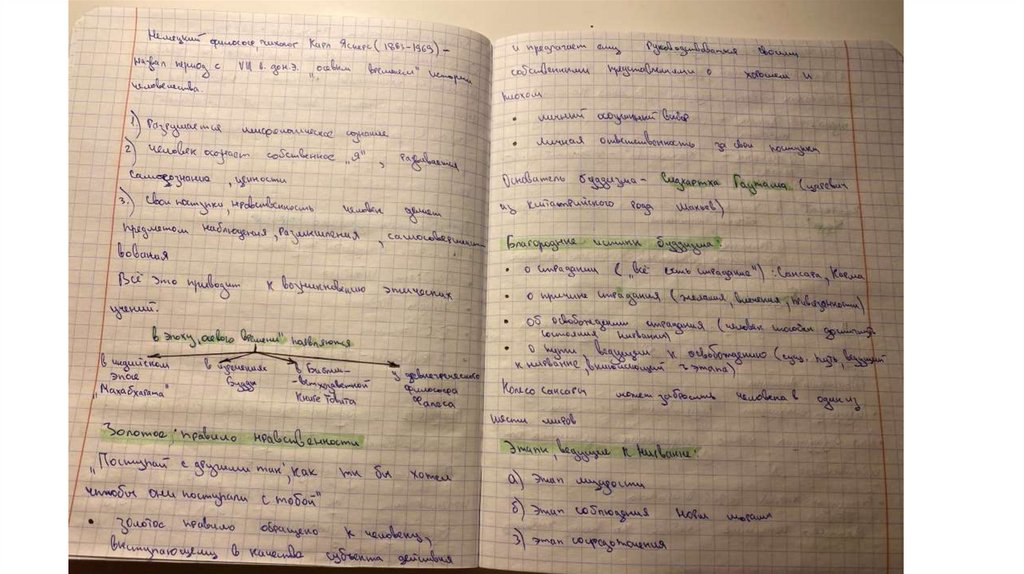 Немецкий философ, психолог Карл Ясперс (1883-1969) -
назвал период с VII в. до н.э. „осевым временем" истории
человечества.
1) Разрушается мифологическое сознание
2) Человек осознает собственное „Я", развивается
самосознание, ценности
3.) Свои поступки, нравственность человек делает
предметом наблюдения, размышления, самосовершенст-
вования
Всё это приводит к возникновению этических
учений.
в эпоху „осевого времени" появляются
в индийском
эпосе
„Махабхарата"
в учениях
Будды
в Библии-
-ветхозаветной
Книге Товита
у древнегреческого
философа
Фалеса
Золотое правило нравственности
„Поступай с другими так, как ты бы хотел
чтобы они поступали с тобой"
• Золотое правило обращено к человеку,
выступающему в качестве субъекта действия
и предлагает ему руководствоваться своими
собственными представлениями о хорошем и
плохом
• личный моральный выбор
• личная ответственность за свои поступки
Основатель буддизма - Сидхартха Гаутама (царевич
из кшатрийского рода Шакьев)
Благородные истины буддизма:
• о страдании („всё есть страдание") : Сансара, Карма
• о причине страдания (желания, влечения, привязанности)
• об освобождении страдания (человек способен достичь
состояния нирваны)
• о пути, ведущем к освобождению (сущ. путь, ведущий
к нирване, включающий 3 этапа)
Колесо Сансары может забросить человека в один из
шести миров
Этапы, ведущие к Нирване:
а) этап мудрости
б) этап соблюдения норм морали
3) этап сосредоточения